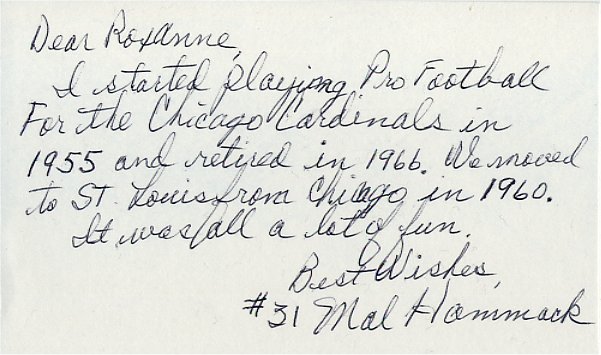 Dear Roxanne,
I started playing Pro Football
For the Chicago Cardinals in
1955 and retired in 1966. We moved
to St. Louis from Chicago in 1960.
It was all a lot of fun.
Best Wishes,
#31 Mal Hammack